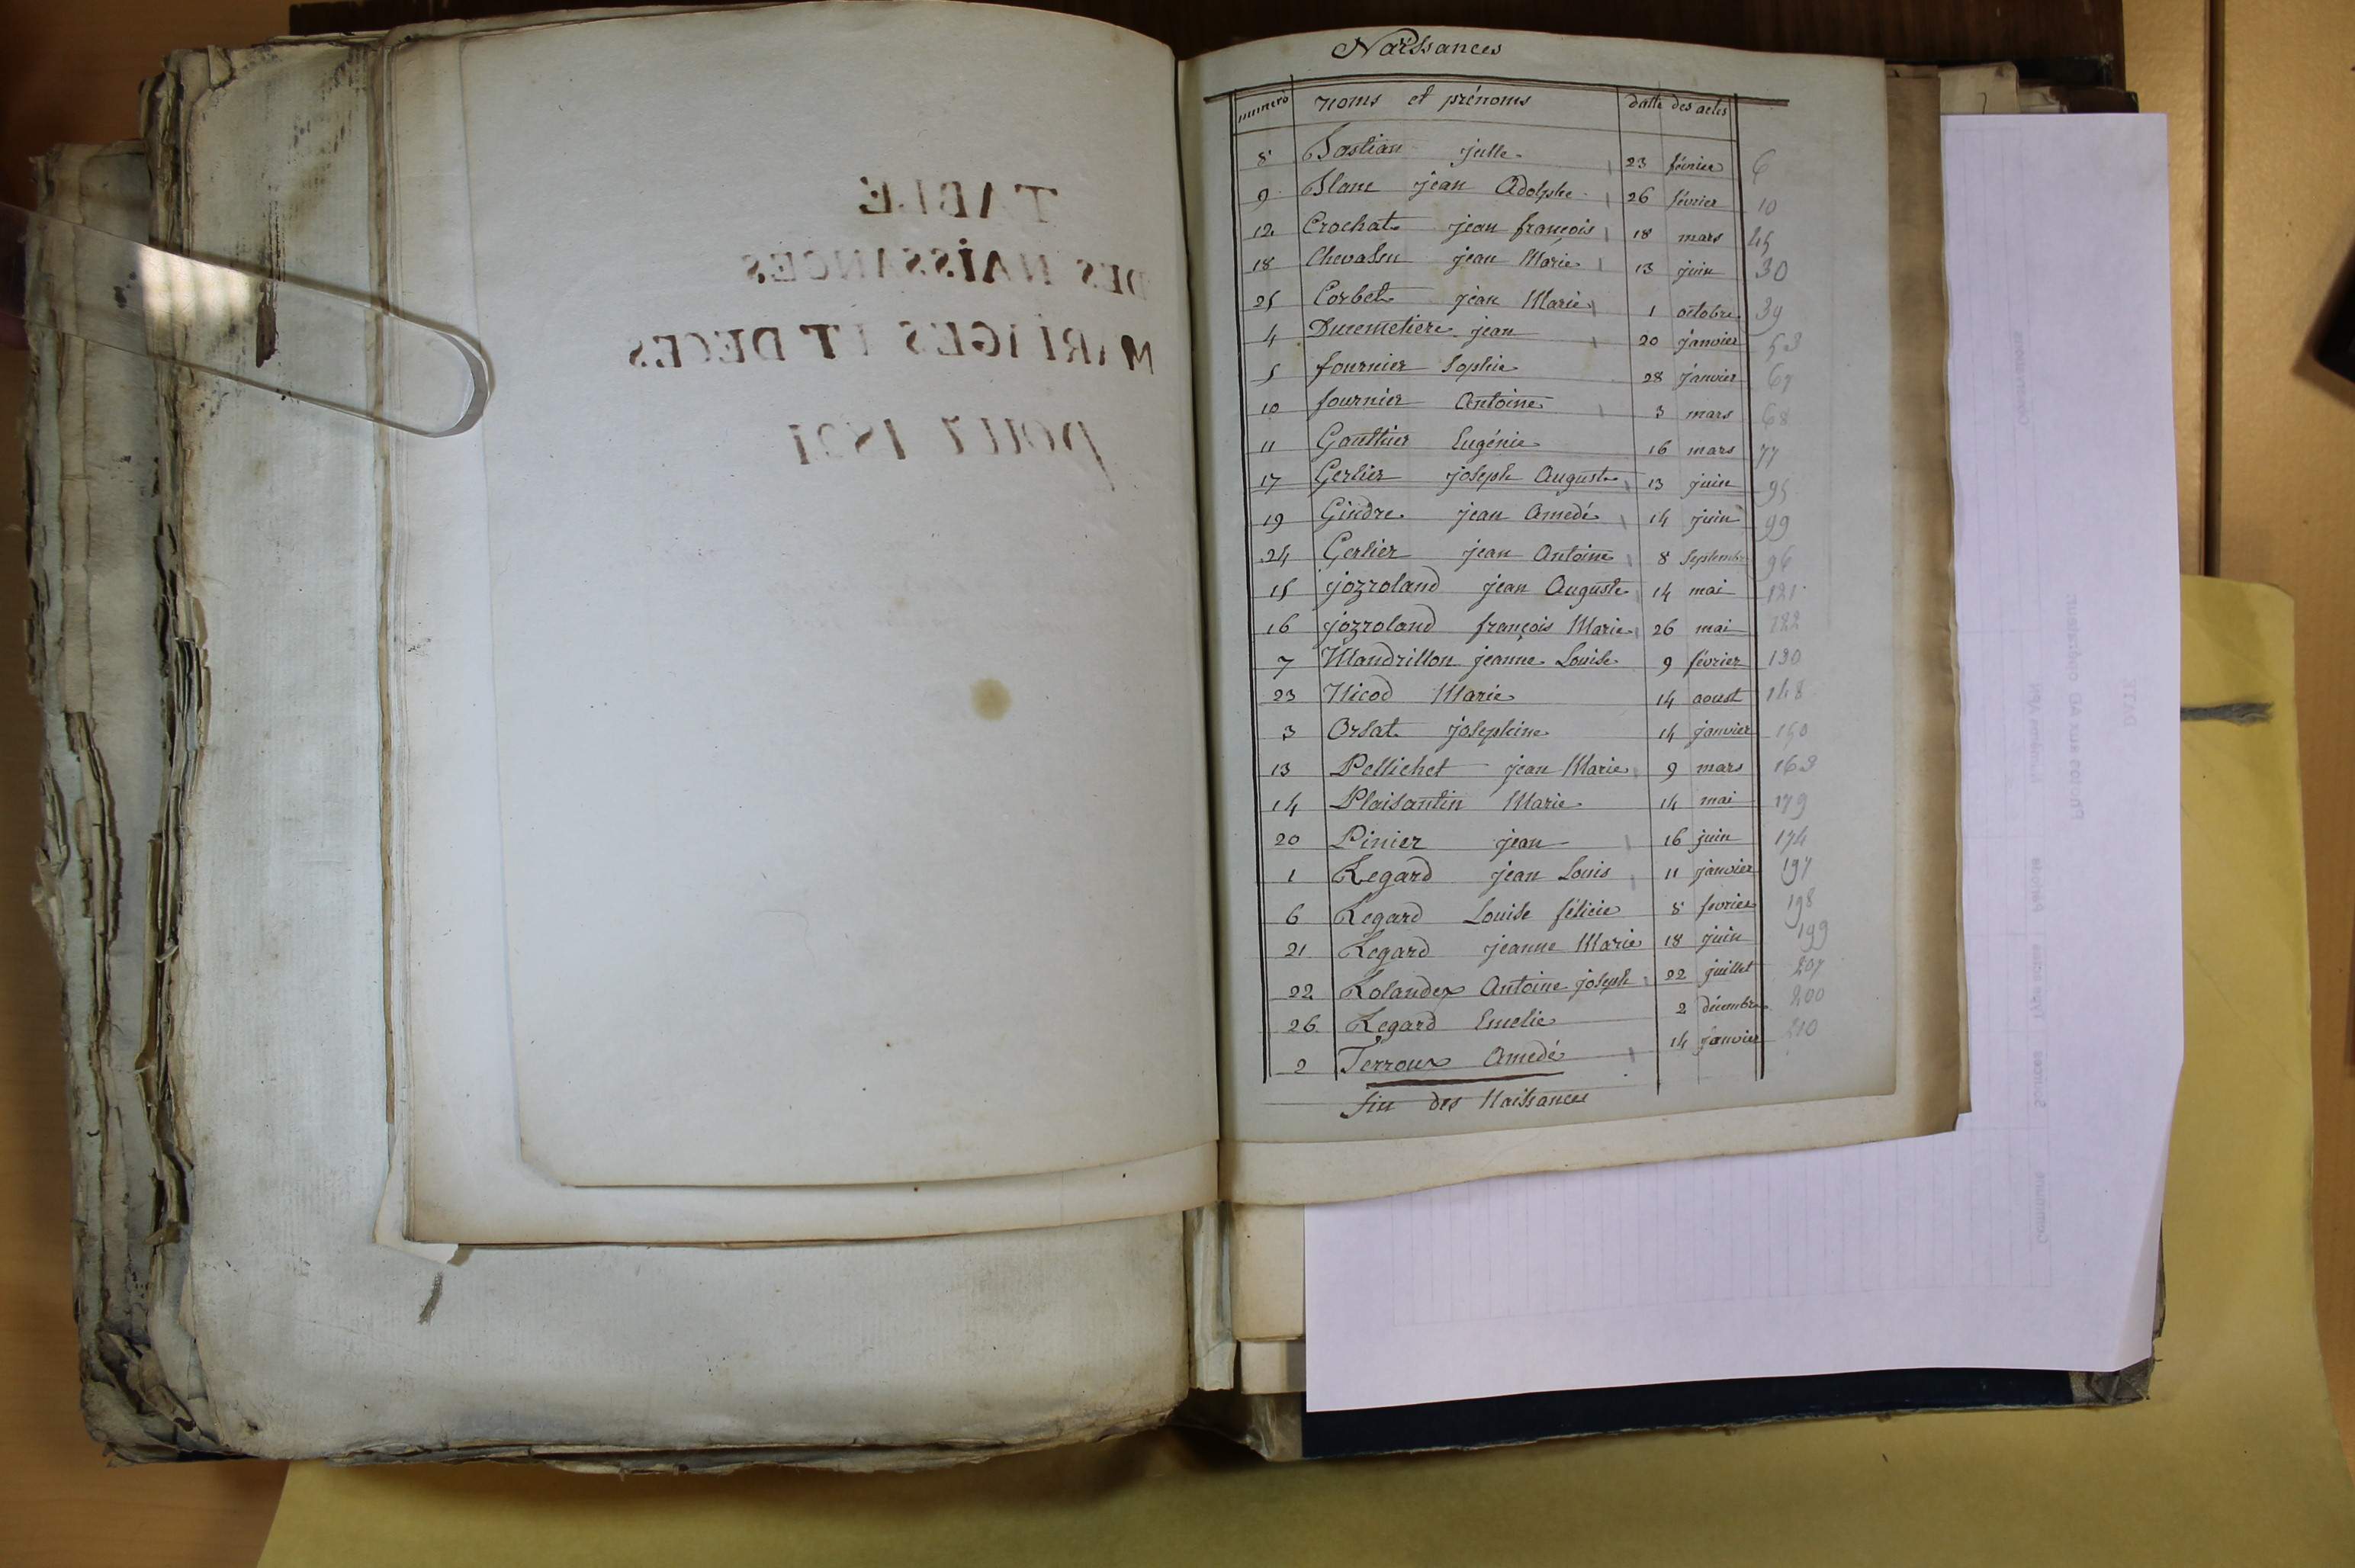 TABLE
DES NAISSANCES
MARIAGES ET DECES
pour 1821
Naissances
numero noms et prénoms date des actes
8 Bastian julle 23 février 6
9 Blanc jean Adolphe 26 février 10
12 Crochat jean françois 18 mars 25
18 jean Marie 13 juin 30
25 Corbet jean Marie 1 octobre 39
4 Ducemetiere jean 20 janvier 53
5 fournier Sophie 28 janvier 67
10 fournier Antoine 3 mars 68
11 Gauthier Eugénie 16 mars 77
17 Gerlier joseph Auguste 13 juin 95
19 Gindre jean Amedé 14 juin 99
24 Gerlier jean Antoine 8 Septembre 96
15 jozroland jean Auguste 14 mai 121
16 jozroland françois Marie 26 mai 122
7 Mandrillon jeanne Louise 9 février 130
23 Nicod Marie 14 aoust 148
3 Orsat josephine 14 janvier 150
13 Pellichet jean Marie 9 mars 163
14 Plaisantin Marie 14 mai 179
20 Pinier jean 16 juin 174
1 Regard jean Louis 11 janvier 197
6 Regard Louise félicie 8 fevrier 198
21 Regard jeanne Marie 18 juin 199
22 Rolandex Antoine joseph 22 juillet 207
26 Regard Emelie 2 décembre 200
2 Terroux Amedé 14 janvier 210
fin des Naissances